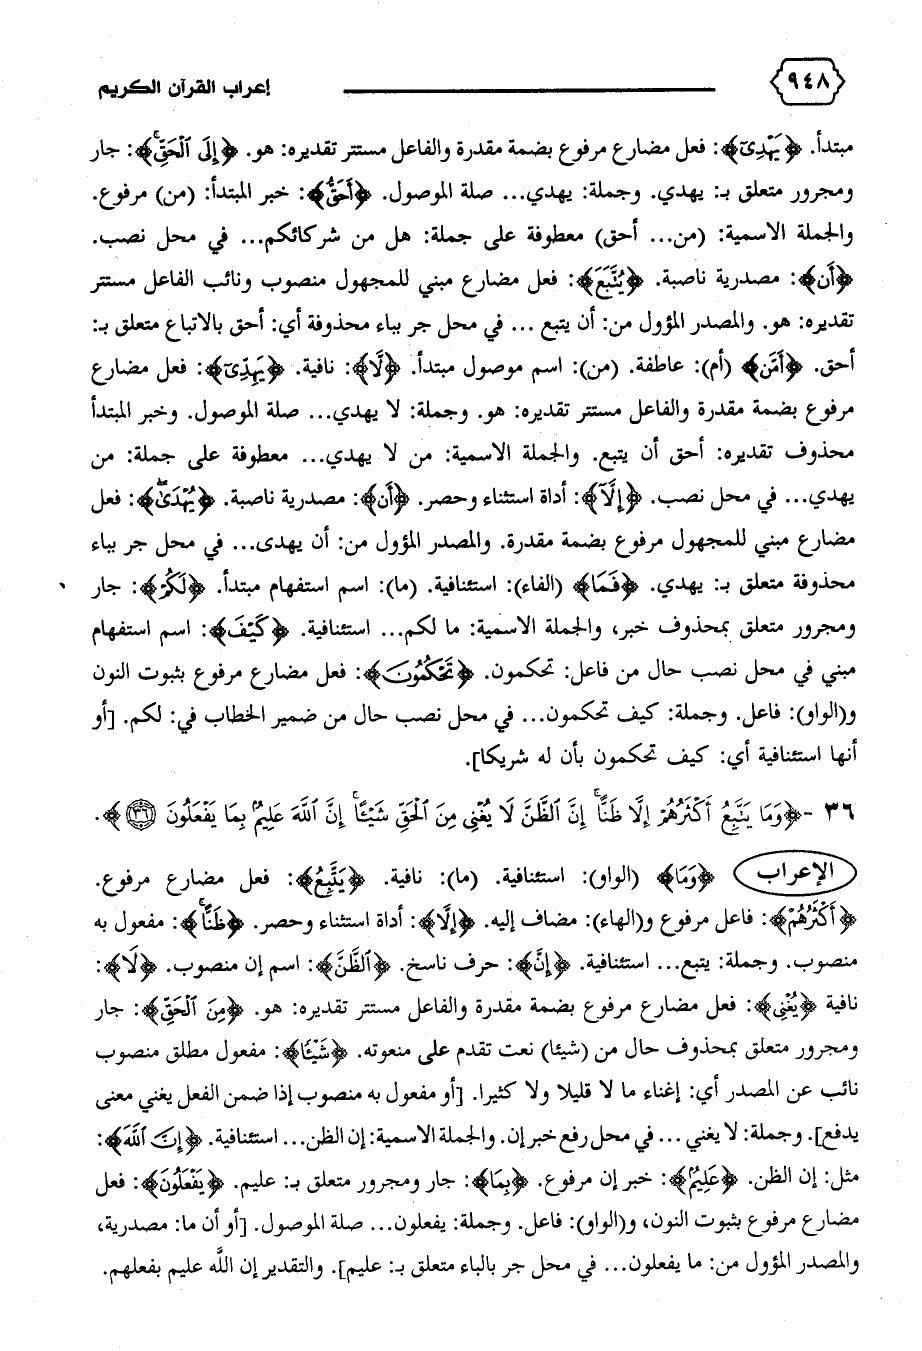 ٩٤٨ إعراب القرآن الكريم
مبتدأ. ﴿يَهْدِىٓ﴾: فعل مضارع مرفوع بضمة مقدرة والفاعل مستتر تقديره: هو. ﴿إِلَى ٱلْحَقِّۚ﴾: جار
ومجرور متعلق بـ: يهدي. وجملة: يهدي... صلة الموصول. ﴿أَحَقُّ﴾: خبر المبتدأ: (من) مرفوع.
والجملة الاسمية: (من... أحق) معطوفة على جملة: هل من شركائكم... في محل نصب.
﴿أَن﴾: مصدرية ناصبة. ﴿يُتَّبَعَ﴾: فعل مضارع مبني للمجهول منصوب ونائب الفاعل مستتر
تقديره: هو. والمصدر المؤول من: أن يتبع ... في محل جر بباء محذوفة أي: أحق بالاتباع متعلق بـ:
أحق. ﴿أَمَّن﴾ (أم): عاطفة. (من): اسم موصول مبتدأ. ﴿لَّا﴾: نافية. ﴿يَهِدِّىٓ﴾: فعل مضارع
مرفوع بضمة مقدرة والفاعل مستتر تقديره: هو. وجملة: لا يهدي... صلة الموصول. وخبر المبتدأ
محذوف تقديره: أحق أن يتبع. والجملة الاسمية: من لا يهدي... معطوفة على جملة: من
يهدي... في محل نصب. ﴿إِلَّآ﴾: أداة استثناء وحصر. ﴿أَن﴾: مصدرية ناصبة. ﴿يُهْدَىٰۖ﴾: فعل
مضارع مبني للمجهول مرفوع بضمة مقدرة. والمصدر المؤول من: أن يهدى... في محل جر بباء
محذوفة متعلق بـ: يهدي. ﴿فَمَا﴾ (الفاء): استئنافية. (ما): اسم استفهام مبتدأ. ﴿لَكُمْ﴾: جار
ومجرور متعلق بمحذوف خبر، والجملة الاسمية: ما لكم... استئنافية. ﴿كَيْفَ﴾: اسم استفهام
مبني في محل نصب حال من فاعل: تحكمون. ﴿تَحْكُمُونَ﴾: فعل مضارع مرفوع بثبوت النون
و(الواو): فاعل. وجملة: كيف تحكمون... في محل نصب حال من ضمير الخطاب في: لكم. [أو
أنها استئنافية أي: كيف تحكمون بأن له شريكا].
٣٦ -﴿وَمَا يَتَّبِعُ أَكْثَرُهُمْ إِلَّا ظَنًّاۚ إِنَّ ٱلظَّنَّ لَا يُغْنِى مِنَ ٱلْحَقِّ شَيْـًٔاۚ إِنَّ ٱللَّهَ عَلِيمٌۢ بِمَا يَفْعَلُونَ ٣٦﴾.
الإعراب ﴿وَمَا﴾ (الواو): استئنافية. (ما): نافية. ﴿يَتَّبِعُ﴾: فعل مضارع مرفوع.
﴿أَكْثَرُهُمْ﴾: فاعل مرفوع و(الهاء): مضاف إليه. ﴿إِلَّا﴾: أداة استثناء وحصر. ﴿ظَنًّاۚ﴾: مفعول به
منصوب. وجملة: يتبع... استئنافية. ﴿إِنَّ﴾: حرف ناسخ. ﴿ٱلظَّنَّ﴾: اسم إن منصوب. ﴿لَا﴾:
نافية ﴿يُغْنِى﴾: فعل مضارع مرفوع بضمة مقدرة والفاعل مستتر تقديره: هو. ﴿مِنَ ٱلْحَقِّ﴾: جار
ومجرور متعلق بمحذوف حال من (شيئا) نعت تقدم على منعوته. ﴿شَيْـًٔا﴾: مفعول مطلق منصوب
نائب عن المصدر أي: إغناء ما لا قليلا ولا كثيرا. [أو مفعول به منصوب إذا ضمن الفعل يغني معنى
يدفع]. وجملة: لا يغني ... في محل رفع خبر إن. والجملة الاسمية: إن الظن... استئنافية. ﴿إِنَّ ٱللَّهَ﴾:
مثل: إن الظن. ﴿عَلِيمٌۢ﴾: خبر إن مرفوع. ﴿بِمَا﴾: جار ومجرور متعلق بـ: عليم. ﴿يَفْعَلُونَ﴾: فعل
مضارع مرفوع بثبوت النون، و(الواو): فاعل. وجملة: يفعلون... صلة الموصول. [أو أن ما: مصدرية،
والمصدر المؤول من: ما يفعلون... في محل جر بالباء متعلق بـ: عليم]. والتقدير إن اللَّه عليم بفعلهم.